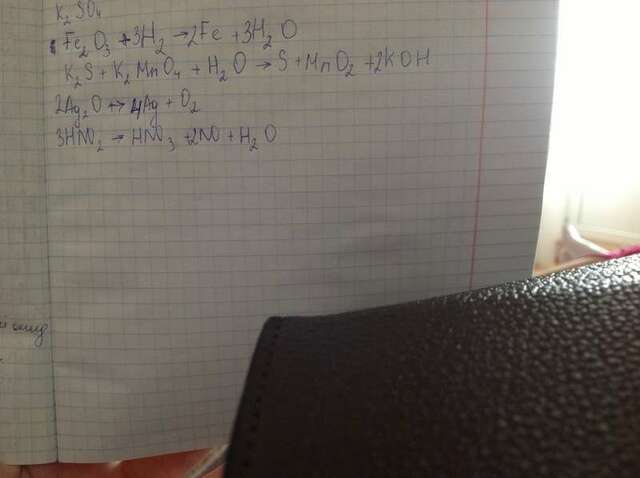 K₂SO₄
Fe₂O₃ + 3H₂ → 2Fe + 3H₂O
K₂S + K₂MnO₄ + H₂O → S + MnO₂ + 2KOH
2Ag₂O → 4Ag + O₂
3HNO₂ → HNO₃ + 2NO + H₂O